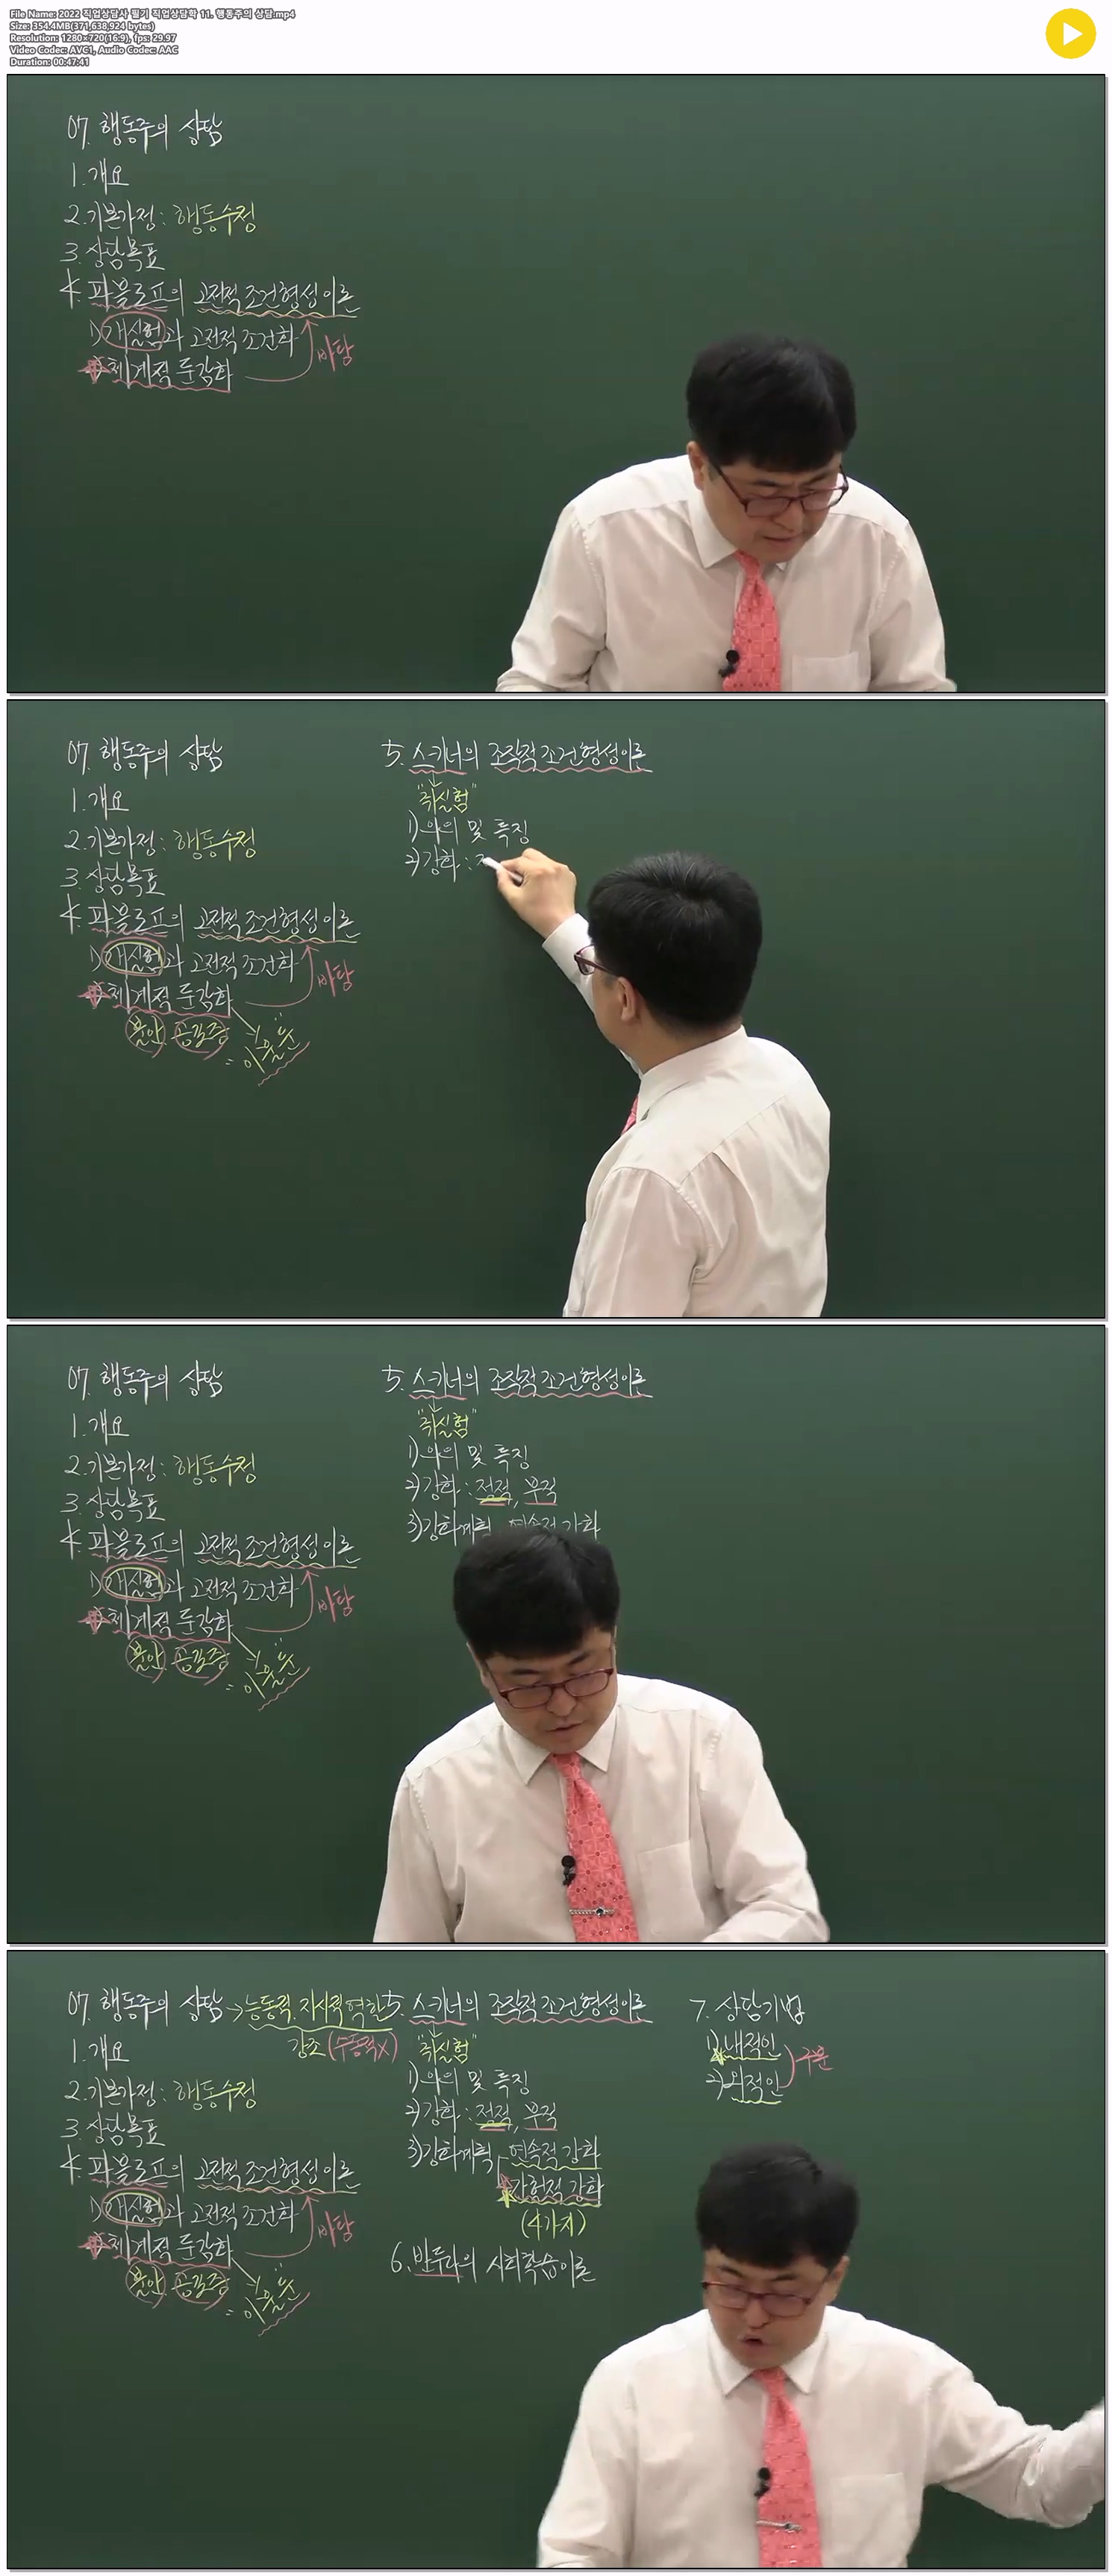 File Name: 2022 직업상담사 필기 직업상담학 11. 행동주의 상담.mp4
Size: 354.4MB(371,638,924 bytes)
Resolution: 1280×720(16:9), fps: 29.97
Video Codec: AVC1, Audio Codec: AAC
Duration: 00:47:41
07. 행동주의 상담
1. 개요
2. 기본가정 : 행동수정
3. 상담목표
4. 파블로프의 고전적 조건형성이론
1) 개실험과 고전적 조건화
체계적 둔감화
바탕
07. 행동주의 상담
1. 개요
2. 기본가정 : 행동수정
3. 상담목표
4. 파블로프의 고전적 조건형성이론
1) 개실험과 고전적 조건화
체계적 둔감화
바탕
불안 공포증
= 이완
5. 스키너의 조작적 조건형성이론
"쥐실험"
1) 의의 및 특징
2) 강화 :
07. 행동주의 상담
1. 개요
2. 기본가정 : 행동수정
3. 상담목표
4. 파블로프의 고전적 조건형성이론
1) 개실험과 고전적 조건화
체계적 둔감화
바탕
불안 공포증
5. 스키너의 조작적 조건형성이론
"쥐실험"
1) 의의 및 특징
2) 강화 : 정적, 부적
3) 강화계획 연속적 강화
07. 행동주의 상담 → 능동적. 지시적 역할
강조 (수동적X)
1. 개요
2. 기본가정 : 행동수정
3. 상담목표
4. 파블로프의 고전적 조건형성이론
1) 개실험과 고전적 조건화
체계적 둔감화
바탕
불안 공포증
5. 스키너의 조작적 조건형성이론
"쥐실험"
1) 의의 및 특징
2) 강화 : 정적, 부적
3) 강화계획 연속적 강화
간헐적 강화
(4가지)
6. 반두라의 사회학습이론
7. 상담기법
1) 내적인
2) 외적인
구분